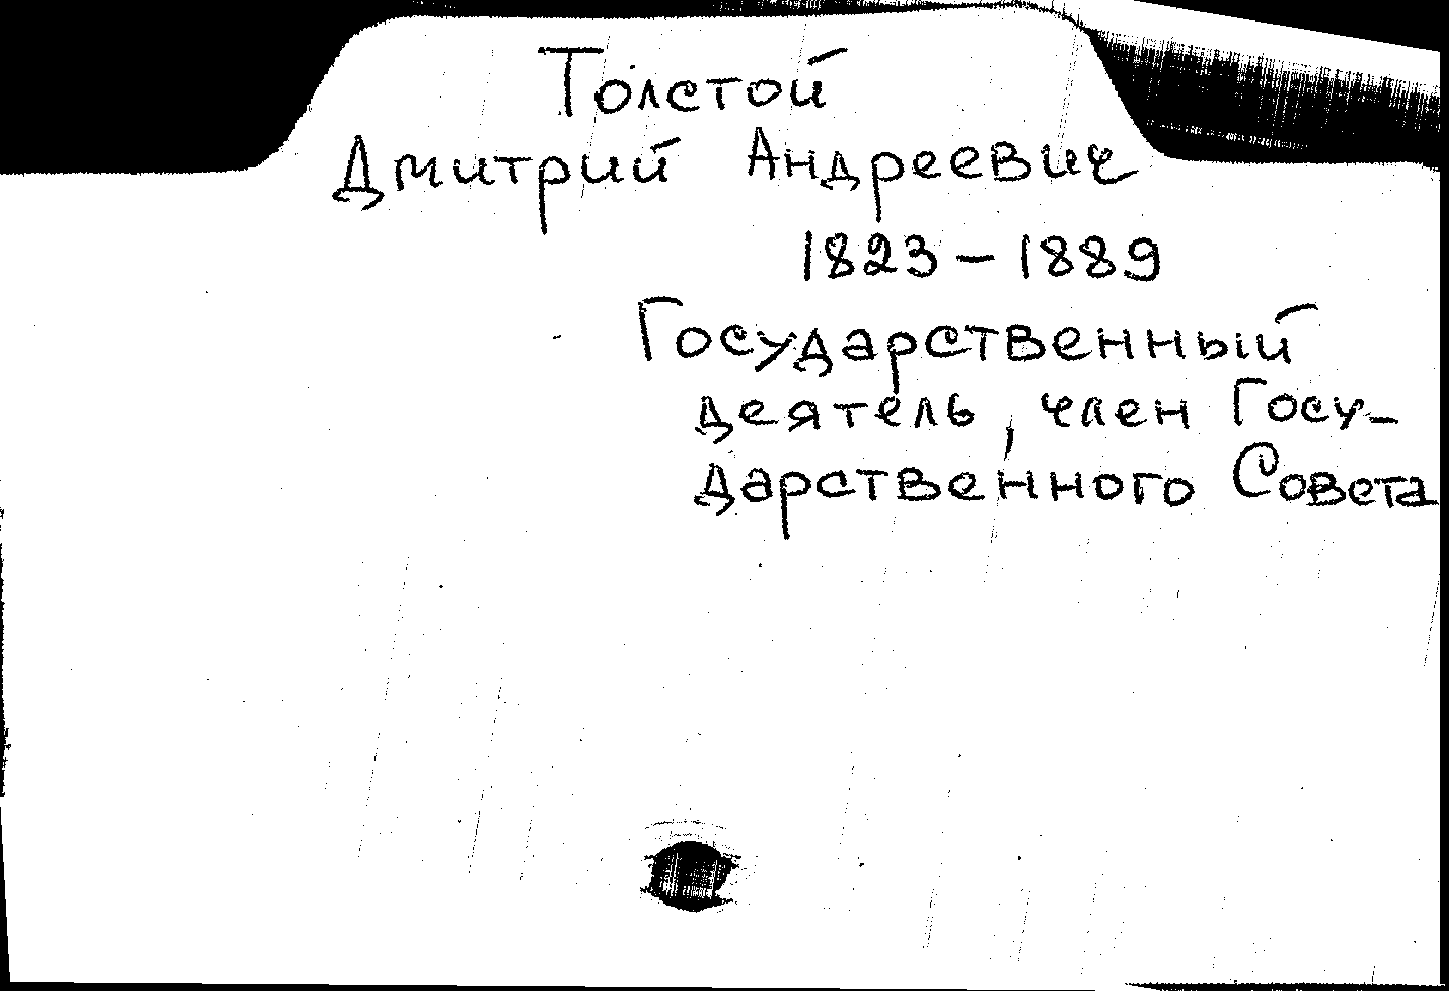 Толстой
Дмитрий Андреевич
1823-1889
Государственный
деятель, член Госу-
дарственного Совета